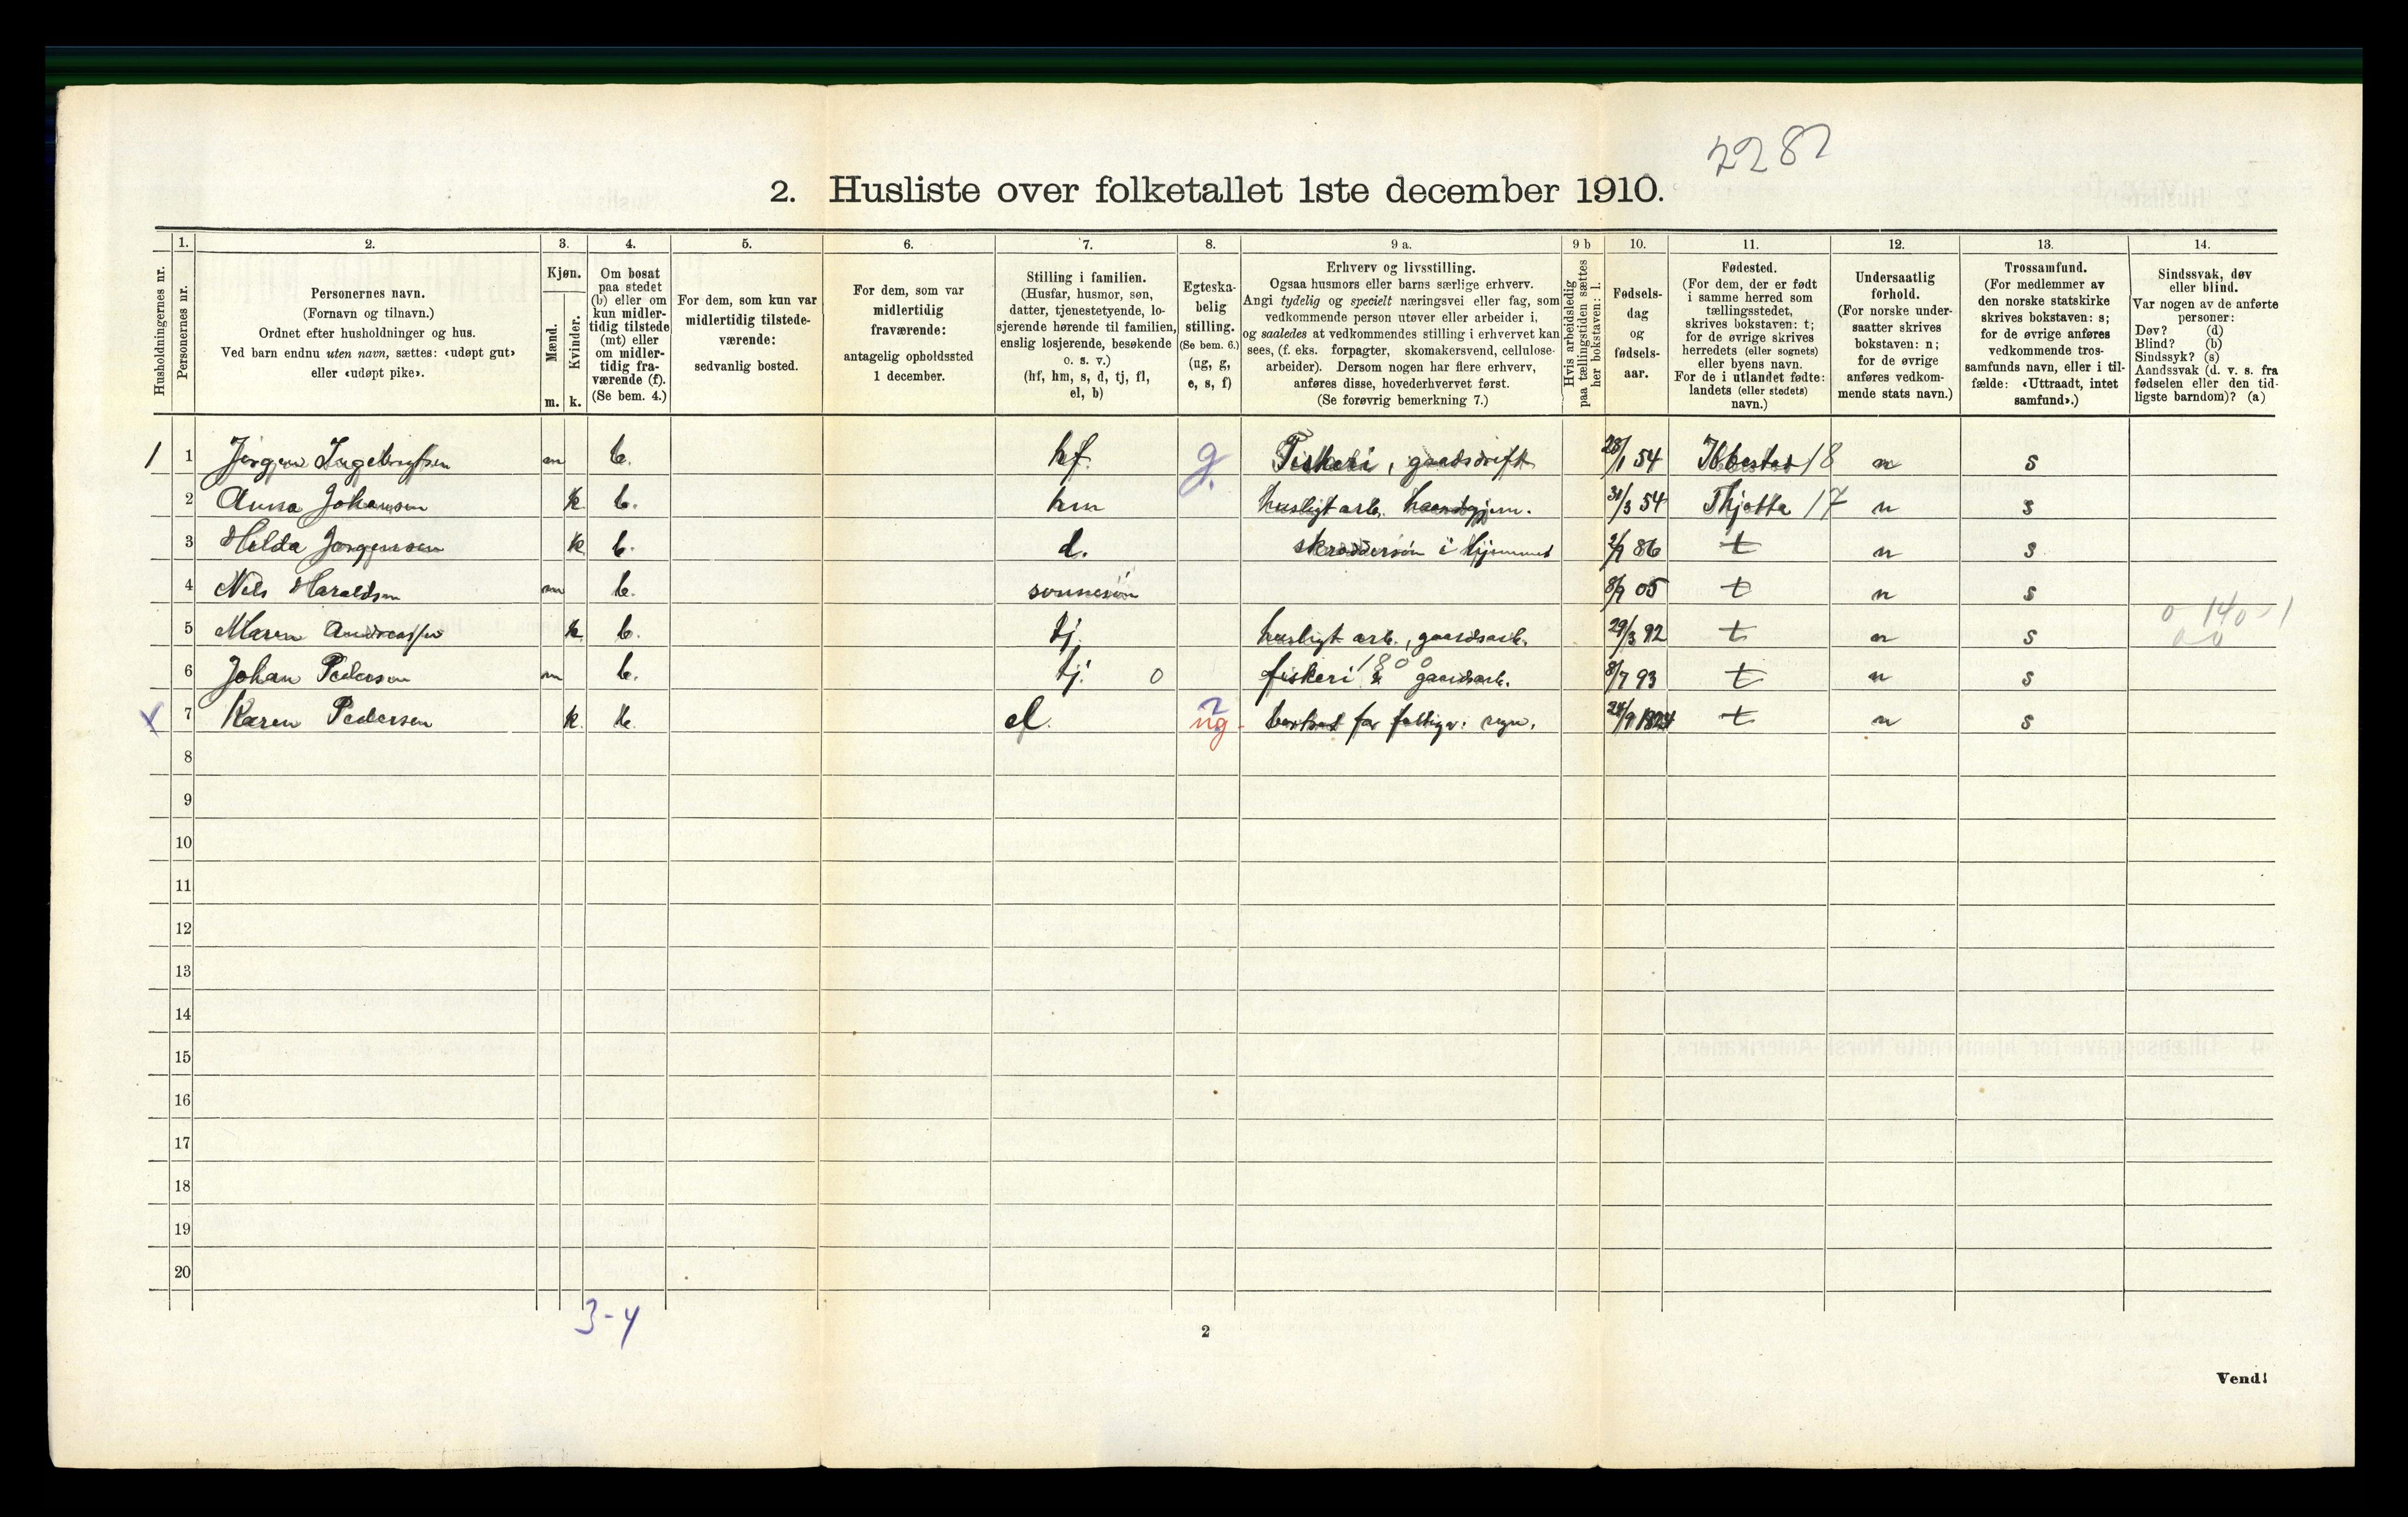 2282
2. Husliste over folketallet 1ste december 1910.
Husholdningernes nr.
1.
Personernes nr.
2.
Personernes navn.
(Fornavn og tilnavn.)
Ordnet efter husholdninger og hus.
Ved barn endnu uten navn, sættes: «udøpt gut»
eller «udøpt pike».
3.
Kjøn.
Mænd.
Kvinder.
m. k.
4.
Om bosat
paa stedet
(b) eller om
kun midler-
tidig tilstede
(mt) eller
om midler-
tidig fra-
værende (f).
(Se bem. 4.)
5.
For dem, som kun var
midlertidig tilstede-
værende:
sedvanlig bosted.
6.
For dem, som var
midlertidig
fraværende:
antagelig opholdssted
1 december.
7.
Stilling i familien.
(Husfar, husmor, søn,
datter, tjenestetyende, lo-
sjerende hørende til familien,
enslig losjerende, besøkende
o. s. v.)
(hf, hm, s, d, tj, fl,
el, b)
8.
Egteska-
belig
stilling.
(Se bem. 6.)
(ug, g,
e, s, f)
9 a.
Erhverv og livsstilling.
Ogsaa husmors eller barns særlige erhverv.
Angi tydelig og specielt næringsvei eller fag, som
vedkommende person utøver eller arbeider i,
og saaledes at vedkommendes stilling i erhvervet kan
sees, (f. eks. forpagter, skomakersvend, cellulose-
arbeider). Dersom nogen har flere erhverv,
anføres disse, hovederhvervet først.
(Se forøvrig bemerkning 7.)
9 b
Hvis arbeidsledig
paa tællingstiden sættes
her bokstaven: l.
10.
Fødsels-
dag
og
fødsels-
aar.
11.
Fødested.
(For dem, der er født
i samme herred som
tællingsstedet,
skrives bokstaven: t;
for de øvrige skrives
herredets (eller sognets)
eller byens navn.
For de i utlandet fødte:
landets (eller stedets)
navn.)
12.
Undersaatlig
forhold.
(For norske under-
saatter skrives
bokstaven: n;
for de øvrige
anføres vedkom-
mende stats navn.)
13.
Trossamfund.
(For medlemmer av
den norske statskirke
skrives bokstaven: s;
for de øvrige anføres
vedkommende tros-
samfunds navn, eller i til-
fælde: «Uttraadt, intet
samfund».)
14.
Sindssvak, døv
eller blind.
Var nogen av de anførte
personer:
Døv? (d)
Blind? (b)
Sindssyk? (s)
Aandssvak (d. v. s. fra
fødselen eller den tid-
ligste barndom)? (a)
1 1 Jørgen Ingebrigtsen m b. hf. g. Fiskeri, gaardsdrift 28/1 54 Ibbestad 18 n s
2 Anna Johansen k b. hm husligt arb. haandgjern. 31/3 54 Thjøtta 17 n s
3 Helda Jørgensen k b. d. i Hjemmet 2/9 86 t n s
4 Nils Haraldsen m b. sønnesøn 8/9 05 t n s
5 Maren Andreassen k b. tj. husligt arb., gaardsarb. 29/3 92 t n s 0-140-1
0 0
6 Johan Pedersen m b. tj. 0 fiskeri & gaardsarb. 1800 8/7 93 t n s
x 7 Karen Pedersen k b. el. ? ug - bortsat for fattigv: regn. 24/9 1824 t n s
8
9
10
11
12
13
14
15
16
17
18
19
20
3-4
2
Vend!